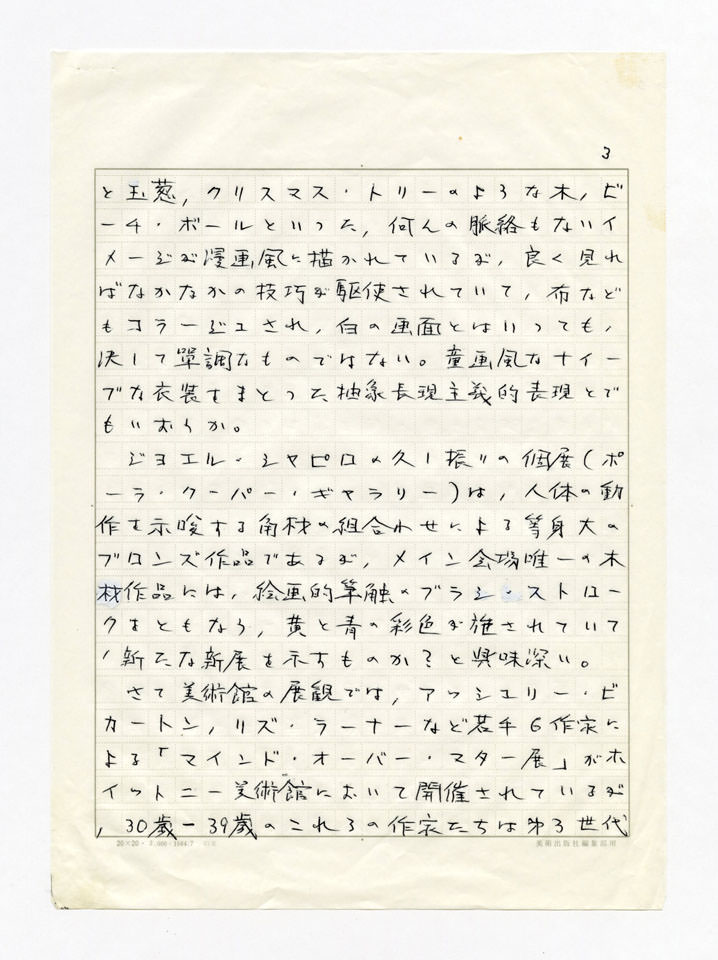 3
と玉葱,クリスマス・トリーのような木,ビ
ーチ・ボールといった,何んの脈絡もないイ
メージが漫画風に描かれているが,良く見れ
ばなかなかの技巧が駆使されていて,布など
もコラージュされ,白の画面とはいっても,
決して単調なものではない。童画風なナイー
ブな衣装をまとった抽象表現主義的表現とで
もいおうか。
ジョエル・シャピロの久し振りの個展(ポ
ーラ・クーパー・ギャラリー)は,人体の動
作を示唆する角材の組合わせによる等身大の
ブロンズ作品であるが,メイン会場唯一の木
材作品には,絵画的筆触のブラシ・ストロー
クをともなう,黄と青の彩色が施されていて
,新たな新展を示すものか?と興味深い。
さて美術館の展観では,アッシュリー・ビ
カートン,リズ・ラーナーなど若手6作家に
よる「マインド・オーバー・マター展」がホ
イットニー美術館において開催されているが
,30歳ー39歳のこれらの作家たちは第3世代
20×20・ 1984.7
美術出版社編集部用